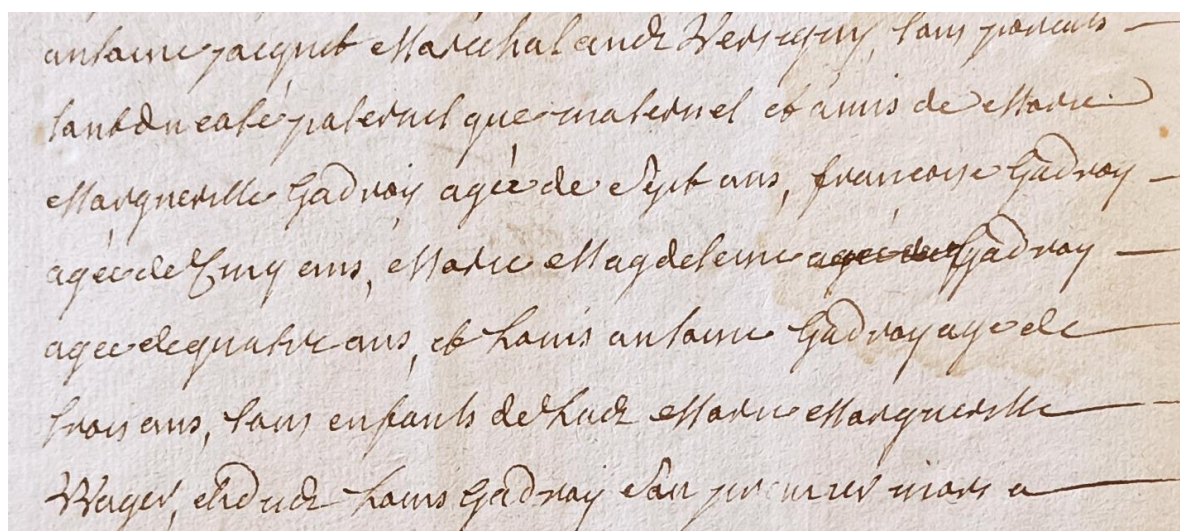 antoine jacquet Marechal aud Versigny, tous parents
tant du coté paternel que maternel et amis de Marie
Margueritte Gadroy agée de Sept ans, francoise Gadroy
agée de Cinq ans, Marie Magdeleine agée de Gadroy
agée de quatre ans, et Louis antoine Gadroy agé de
trois ans, tous enfants de lad Marie Margueritte
Wager, et dud Louis Gadroy Son premier mary a